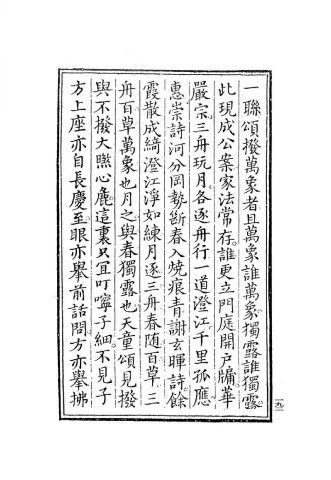 一聯頌撥萬象者且萬象誰萬象獨露誰獨露
此現成公案家法常存誰更立門庭開戶牖華
嚴宗三舟玩月各逐舟行一道澄江千里孤應
惠崇詩河分岡勢斷春入燒痕青謝玄暉詩餘
霞散成綺澄江淨如練月逐三舟春隨百草三
舟百草萬象也月之與春獨露也天童頌見撥
與不撥大㬠心麁這裏只宜叮嚀子細不見子
方上座亦自長慶至眼亦舉前話問方亦舉拂
一九